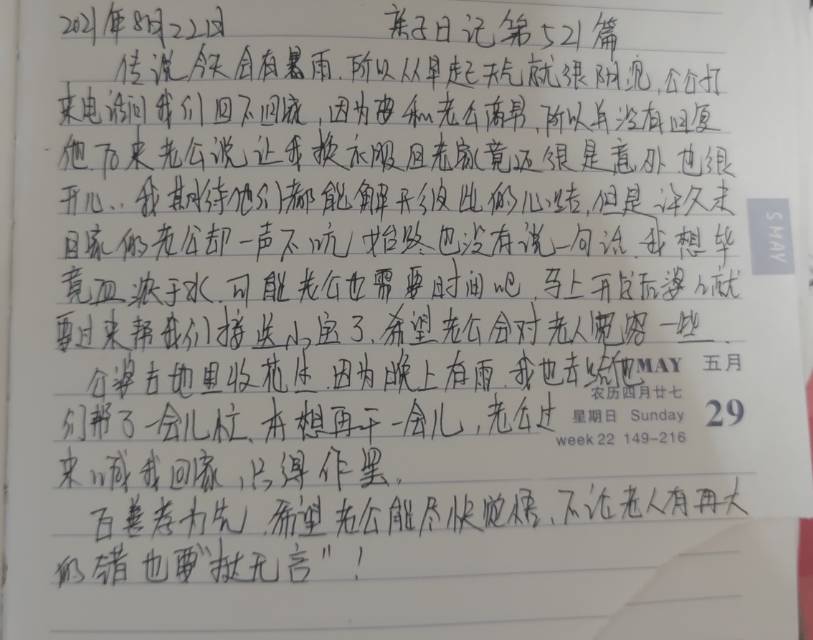 2021年8月22日 亲子日记第521篇
传说今天会有暴雨,所以从早起天气就很阴沉,公公打
来电话问我们回不回家,因为要和老公商量,所以并没有回复
他下来老公说让我换衣服回老家竟还很是意外也很
开心、我期待他们都能解开彼此的心结,但是许久未
回家的老公却一声不吭,始终也没有说一句话,我想毕
竟血浓于水,可能老公也需要时间吧,马上开学后婆婆就
要过来帮我们接送小宝了,希望老公会对老人宽容一些
公婆去地里收花生,因为晚上有雨,我也去给他
们帮了一会儿忙、本想再干一会儿,老公过
来喊我回家,只得作罢。
百善孝为先,希望老公能尽快觉悟,不论老人有再大
的错也要"挞无言"!
SMAY
MAY 五月
农历四月廿七
星期日 Sunday 29
week 22 149-216